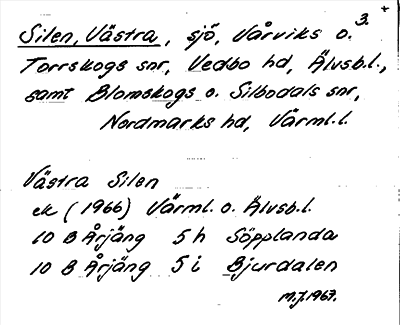 3. +
Silen, Västra, sjö, Vårviks o.
Torrskogs snr, Vedbo hd, Älvsb.l.,
samt Blomskogs o. Silbodals snr,
Nordmarks hd, Värml.l.
Västra Silen
ek (1966) Värml. o. Älvsb.l.
10 B Årjäng 5 h Söpplanda
10 B Årjäng 5 i Bjurdalen
M.J. 1967.